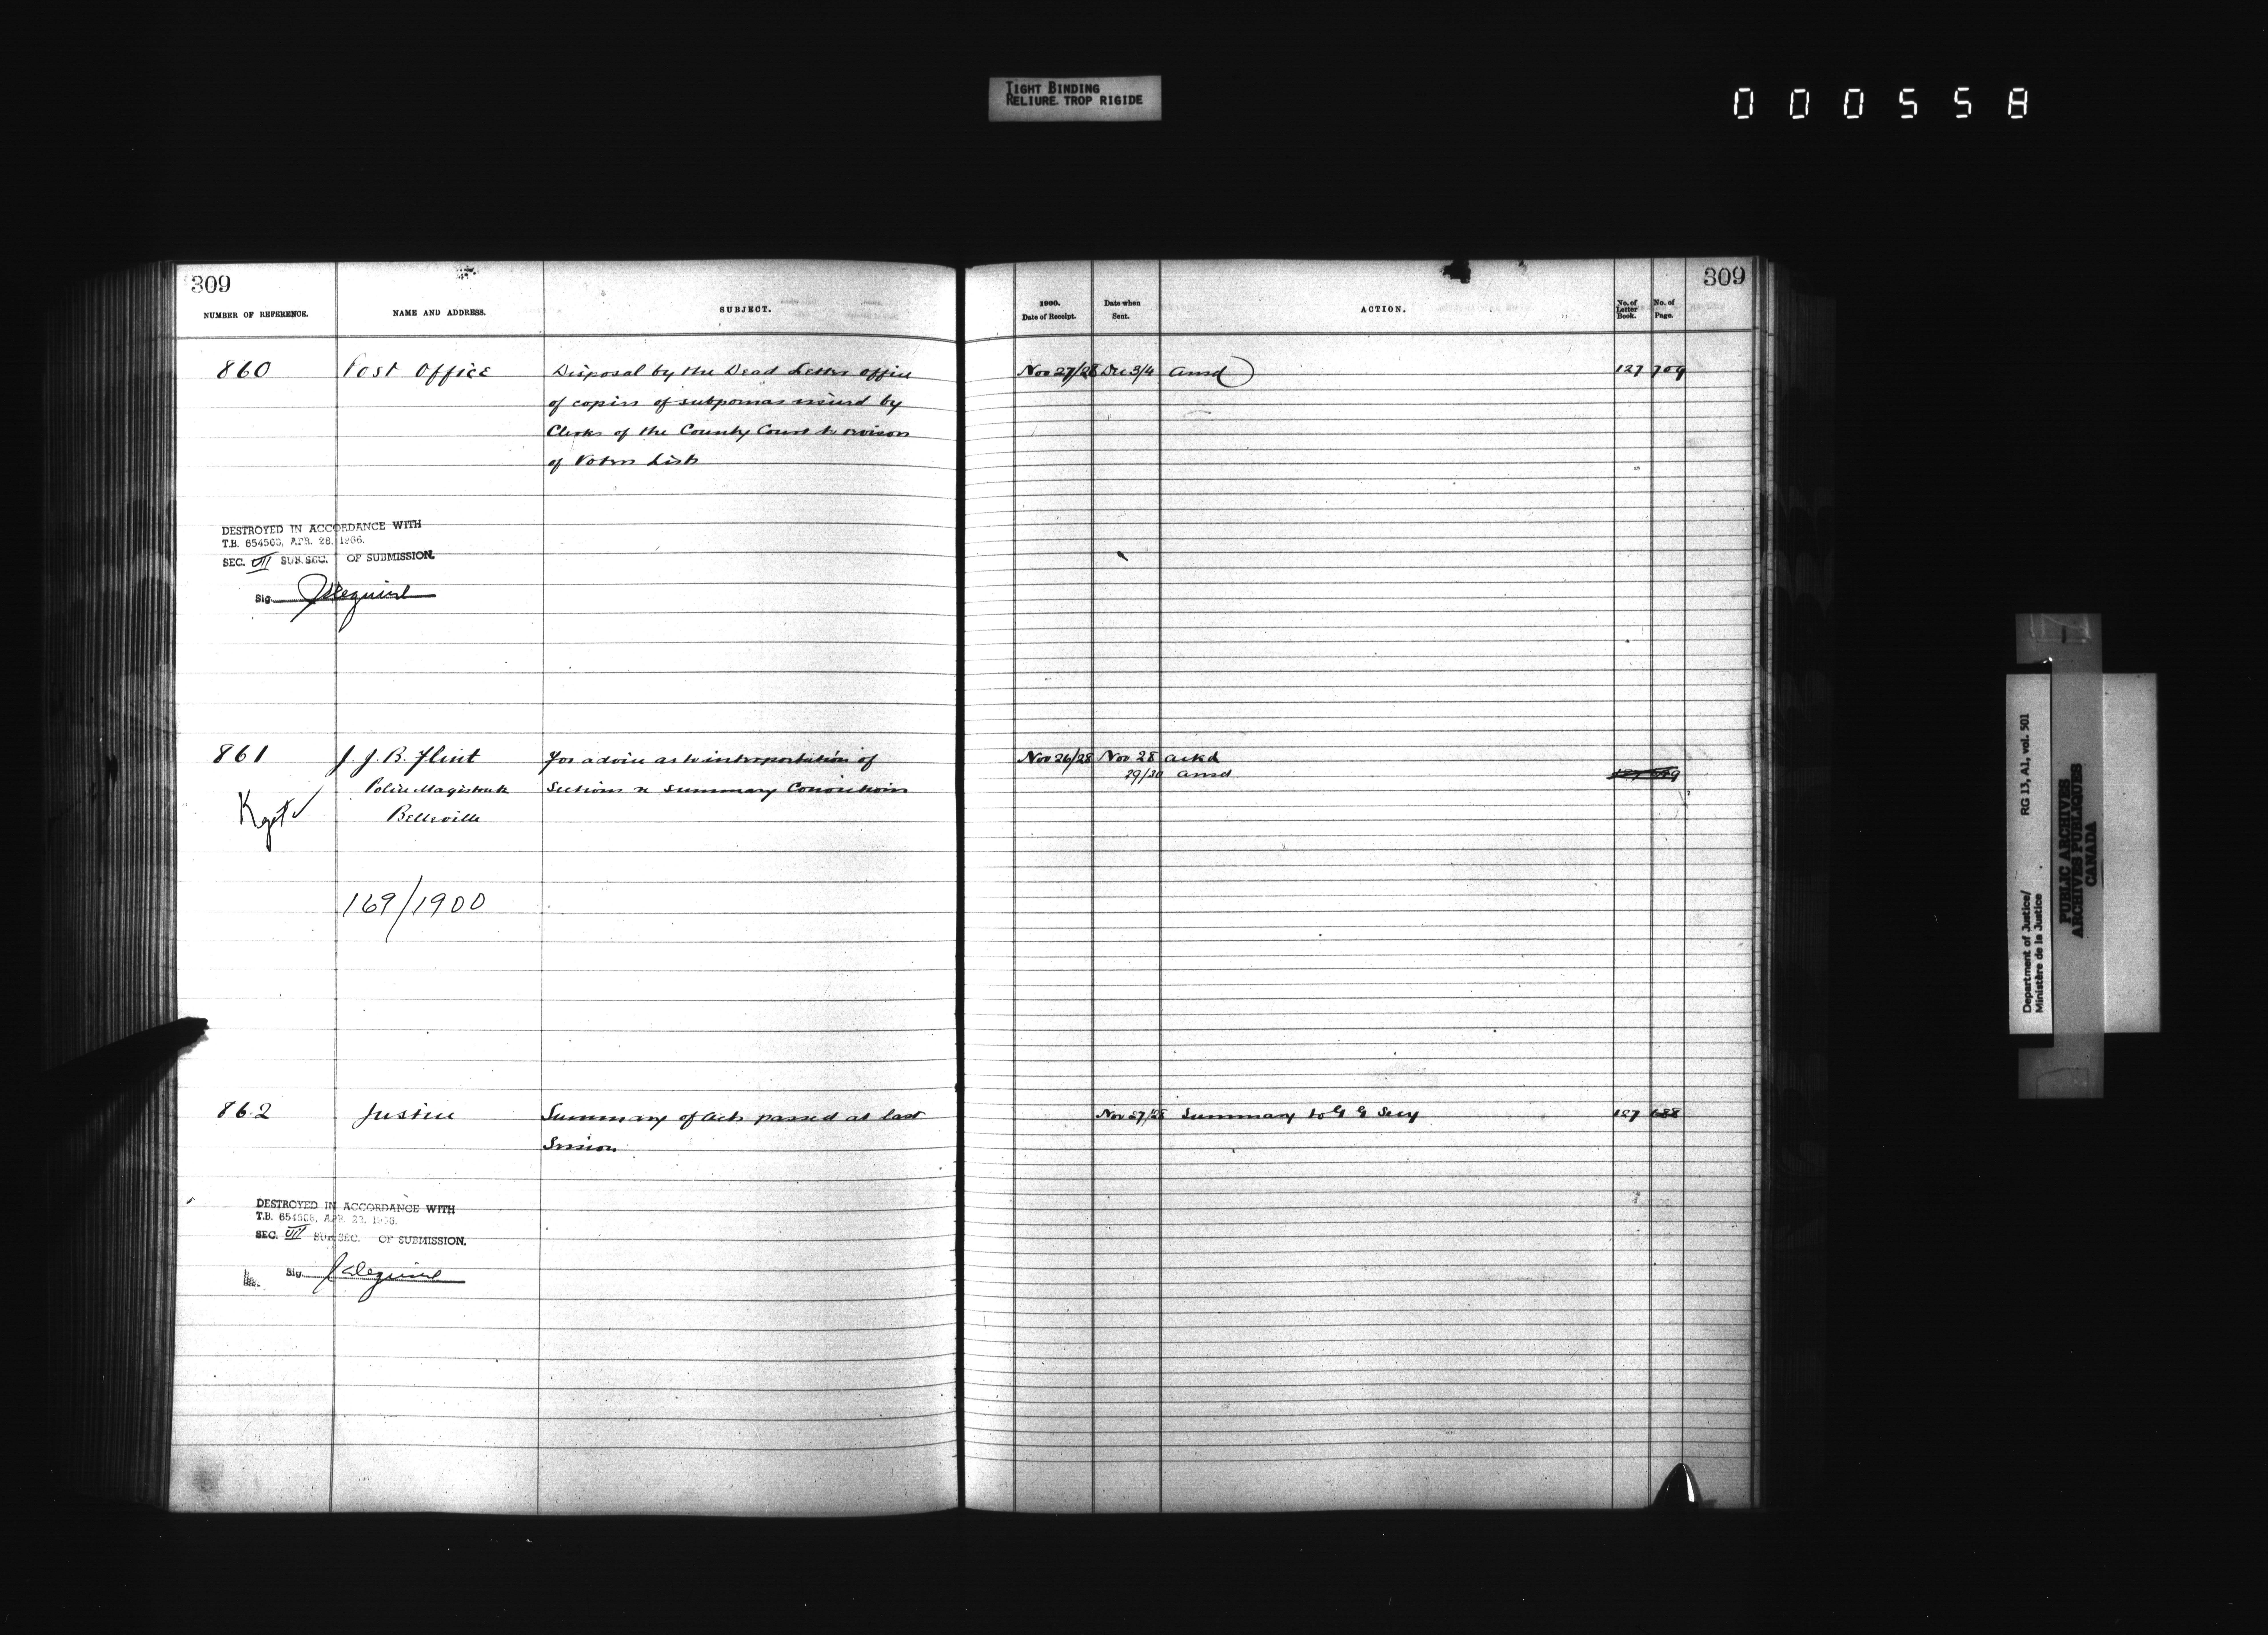 TIGHT BINDING
RELIURE TROP RIGIDE
000558
309
NUMBER OF REFERENCE.
NAME AND ADDRESS.
SUBJECT.
860
Post Office
Disposal by the Dead Letter office
of copies of subpoenas issued by
Clerks of the County Court re revision
of Voters Lists
DESTROYED IN ACCORDANCE WITH
T.B. 654503, APR. 28, 1966.
SEC. VII SUB.SEC. OF SUBMISSION.
Sig.
861
J. J. B. Flint
For advice as to interpretation of
Police Magistrate
Sections re Summary Convictions
Belleville
Kept
169/1900
862
Justice
Summary of Acts passed at last
Session
DESTROYED IN ACCORDANCE WITH
T.B. 654503, APR. 28, 1966.
SEC. VII SUB.SEC. OF SUBMISSION.
Sig.
309
1900.
Date of Receipt.
Date when
Sent.
ACTION.
No. of
Letter
Book.
No. of
Page.
Nov 27/28 Dec 3/4 Ansd 127 709
Nov 26/28 Nov 28 ackd
29/30 Ansd
Nov 27/28 Summary to G G Secy 127 688
Department of Justice/ RG 13, A1, vol. 501
Ministère de la Justice
PUBLIC ARCHIVES
ARCHIVES PUBLIQUES
CANADA